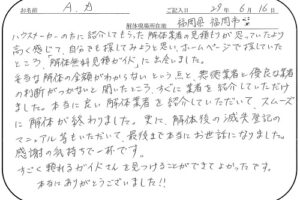 お名前 A.カ ご記入日 29年6月16日
解体現場所在地 福岡県福岡市
ハウスメーカーの方に紹介してもらった解体業者の見積もりが思っていたより
高く感じて、自分でも探してみようと思い、ホームページで探していた
ところ、「解体無料見積ガイド」に出会いました。
妥当な解体の金額がわからないという点と、悪徳業者と優良な業者
の判断がつかないと聞いたところ、すぐに業者を紹介していただけ
ました。本当に良い解体業者を紹介していただいて、スムーズ
に解体が終わりました。更に、解体後の滅失登記の
マニュアル等もいただいて、最後まで本当にお世話になりました。
感謝の気持ちで一杯です。
すごく頼れるガイドさんを見つけることができてよかったです。
本当にありがとうございました!!